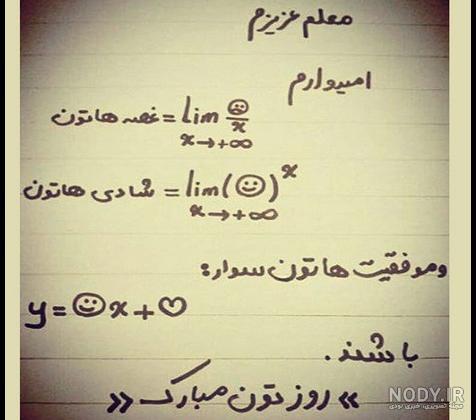 معلم عزیزم
امیدوارم
غصه هاتون = lim ☹/x
x→+∞
شادی هاتون = lim(☺)^x
x→+∞
وموفقیت هاتون سوار:
y=☺x+♡
باشند.
«روزتون مبارک»
NODY.IR